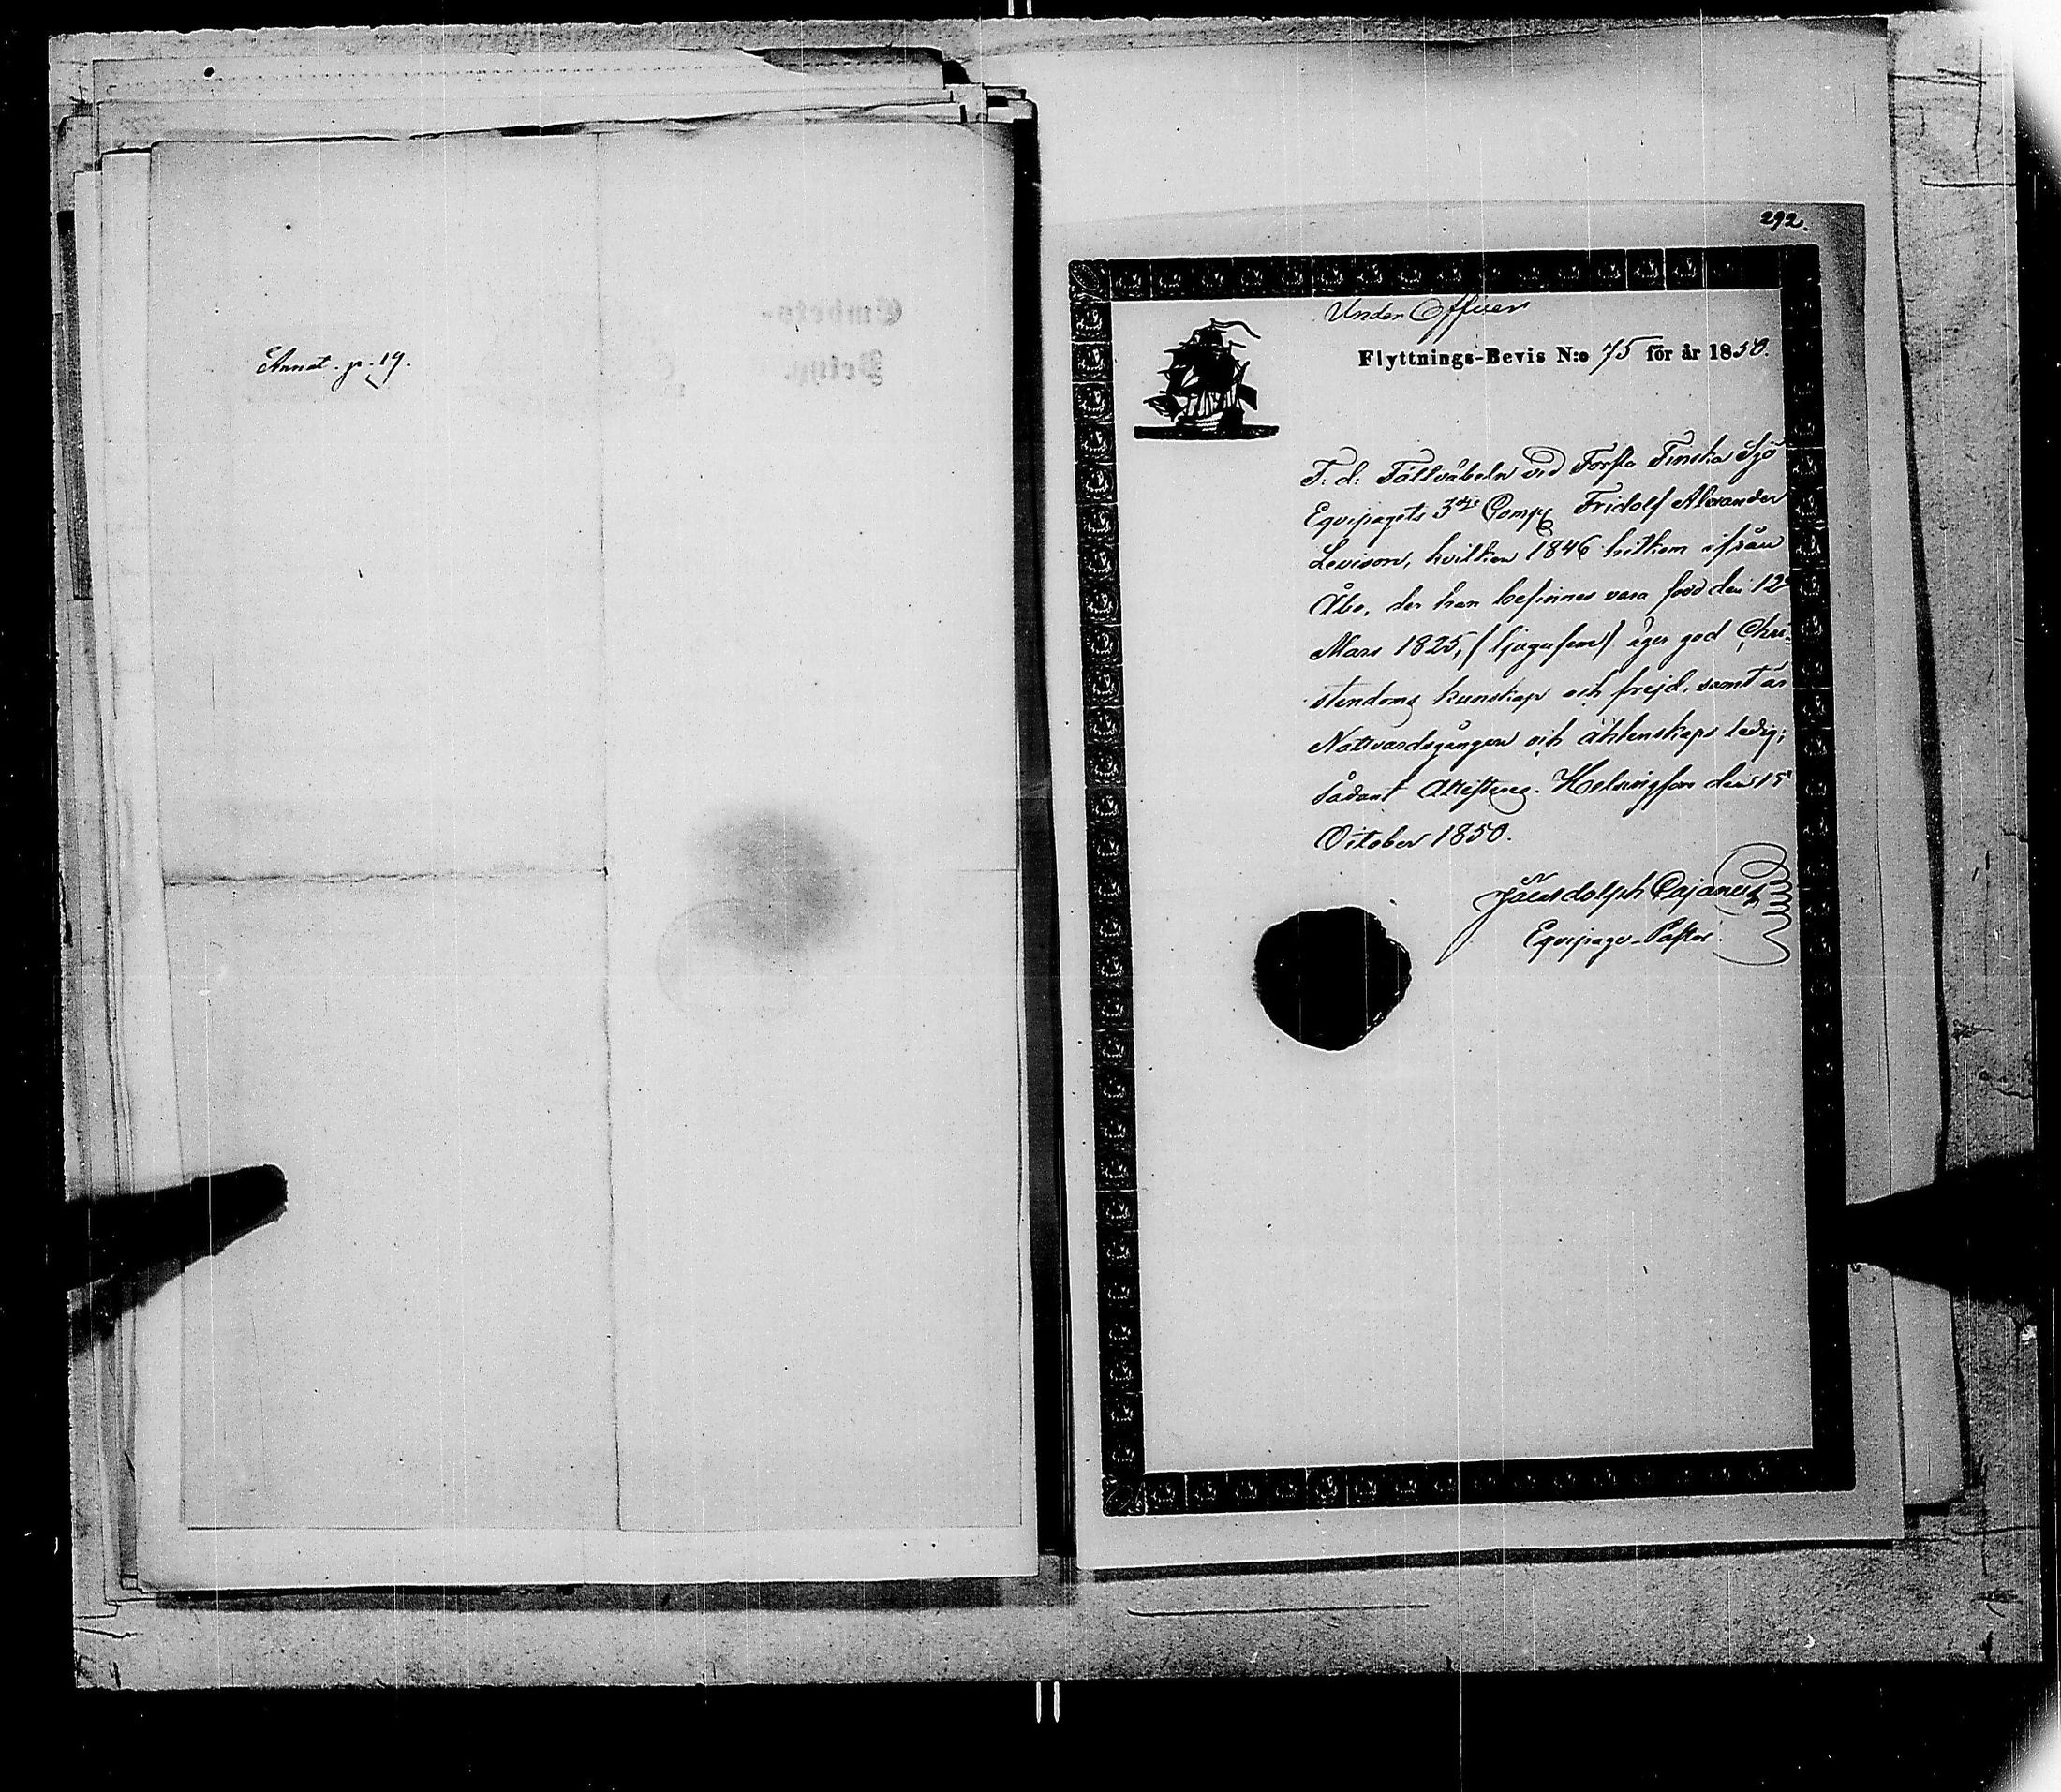 Annot. p. 19.
292.
Under Officer
Flyttnings-Bevis N:o 75 för år 1850.
F: d: Fältväbeln vid Första Finska Sjö
Equipagets 3dje Comp. Fridolf Alexander
Levison, hvilken 1846 hitkom ifrån
Åbo, der han befinnes vara född den 12
Mars 1825, (tjugufem) äger god Chri-
stendoms kunskap och frejd, samt är
Nattvardsgången och äktenskaps ledig;
Sådant Attesteras. Helsingfors den 15
October 1850.
Cajanus
Equipage-Pastor.